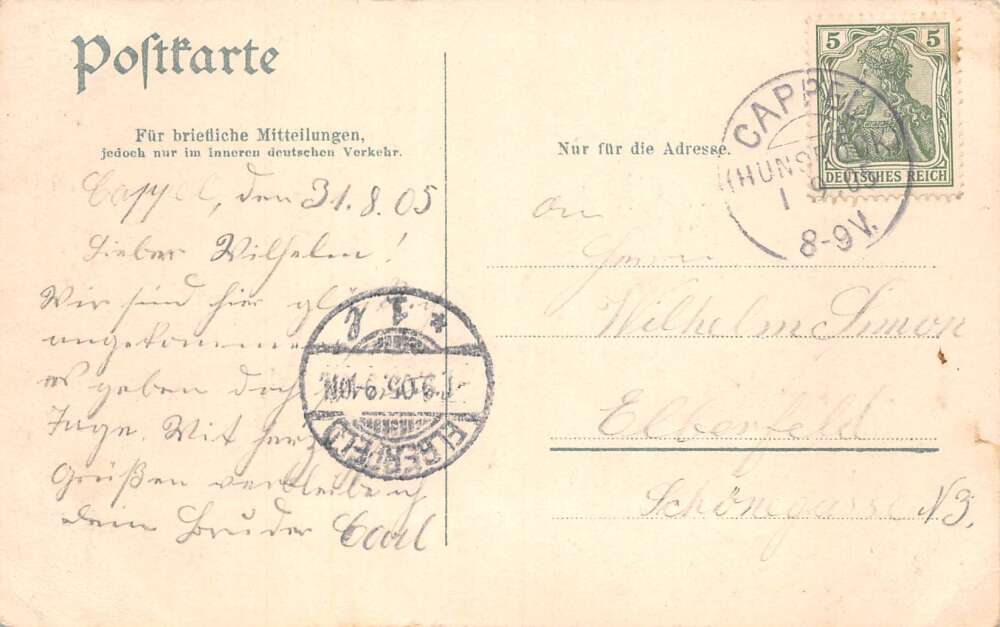 Postkarte
Für briefliche Mitteilungen,
jedoch nur im inneren deutschen Verkehr.
Cappel, den 31.8.05
Lieber Wilhelm!
Wir sind hier
angekommen
es geben doch
Tage. Mit
Grüßen verbleibe ich
dein Bruder Carl
Nur für die Adresse.
An
Herrn
Wilhelm Simon
Elberfeld
Schönegasse N 3.
5 5
DEUTSCHES REICH
CAPPEL
(HUNSRÜCK)
1 9 05
8-9V.
ELBERFELD
1.9.05.9-10N.
* 1 l